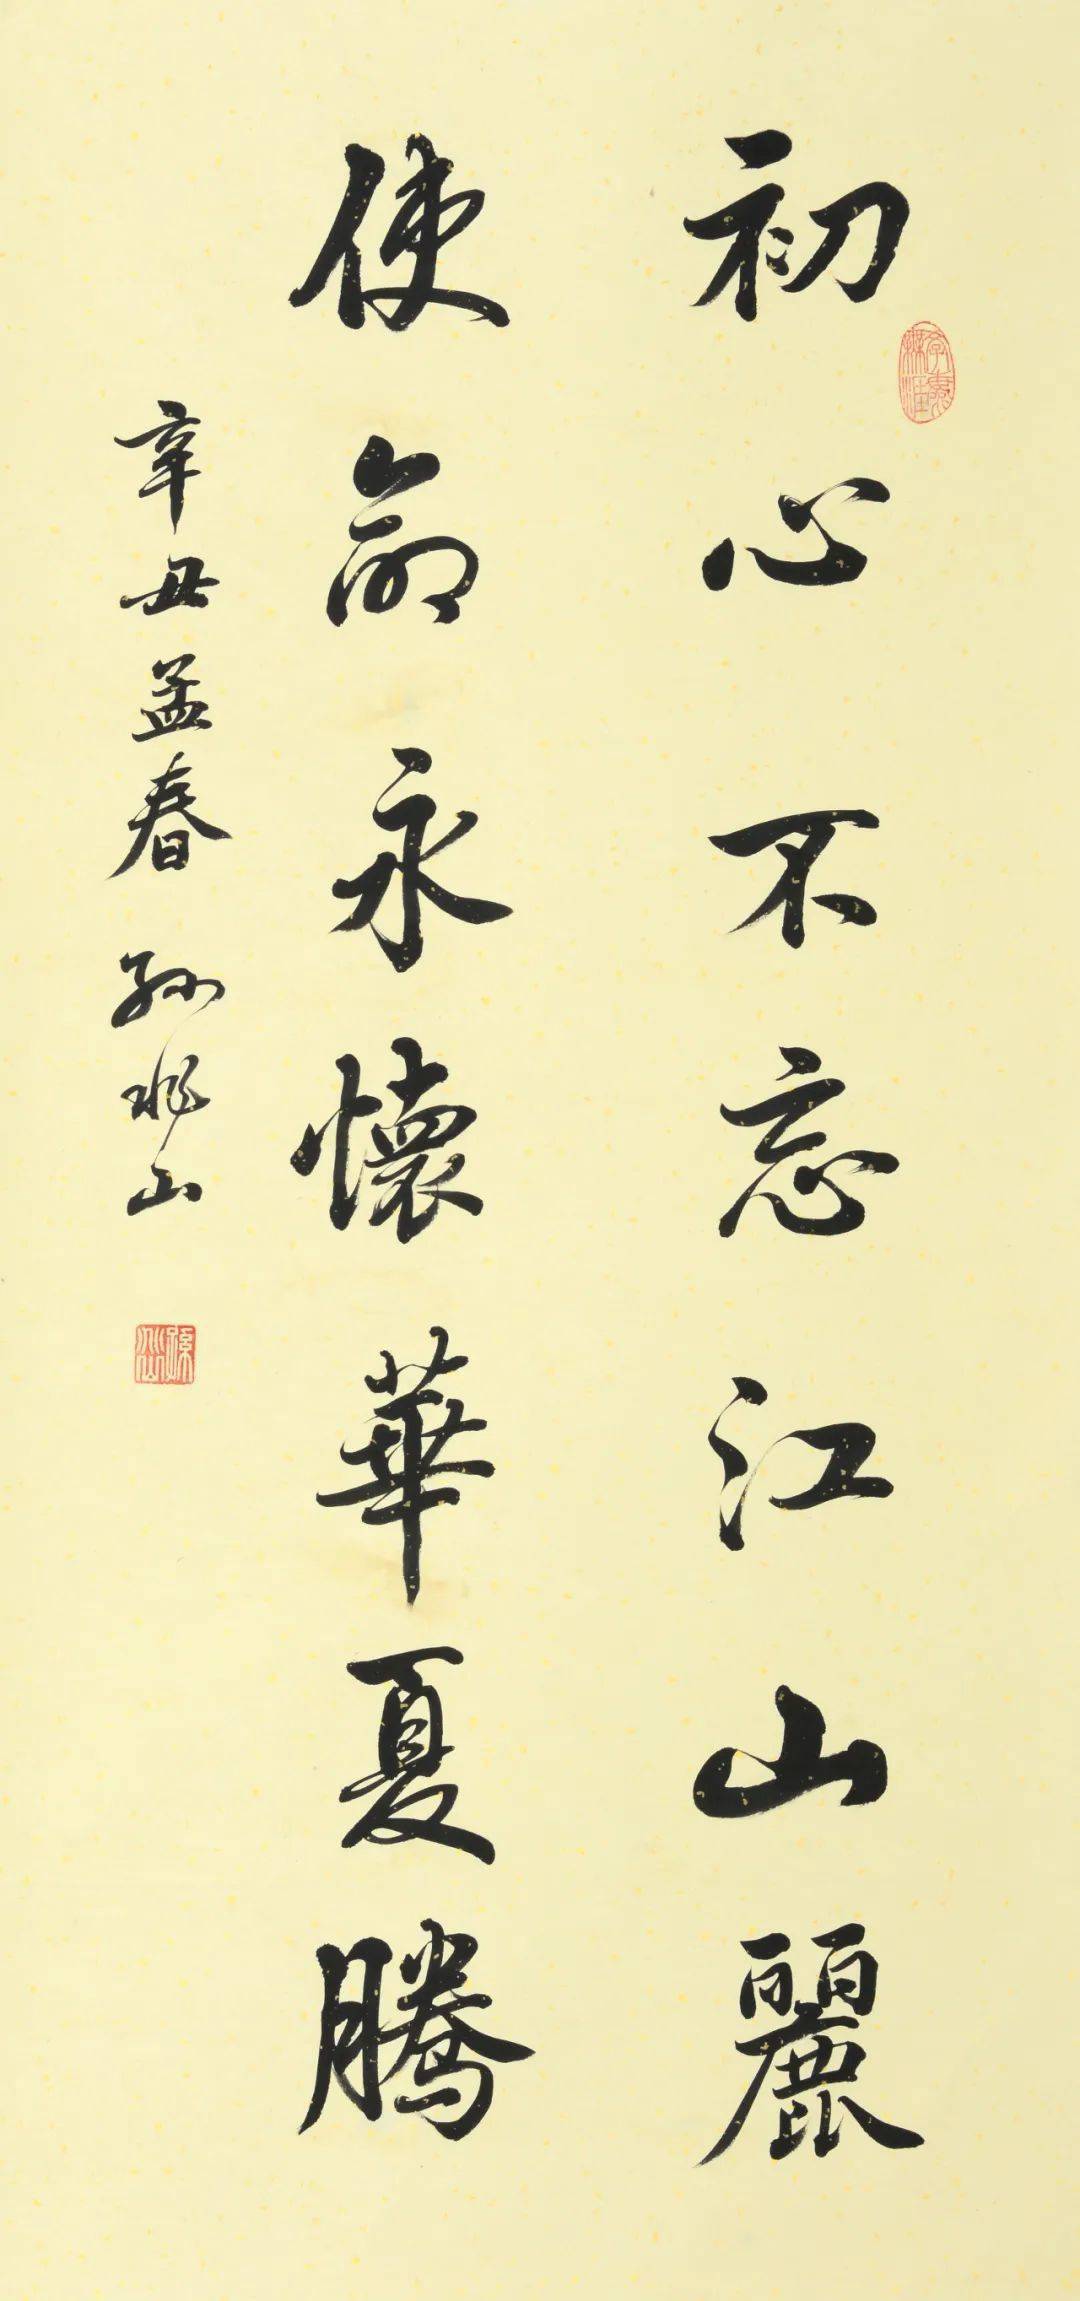 初心不忘江山麗
使命永懷華夏騰
辛丑孟春 孫兆山